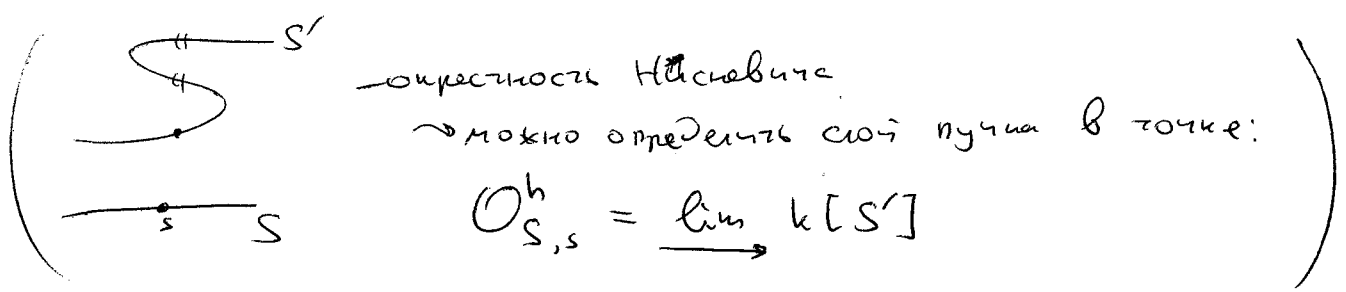 S′
– окрестность Нисневича
⤳ можно определить слой пучка в точке:
s S
𝒪^h_{S,s} = lim k[S′]